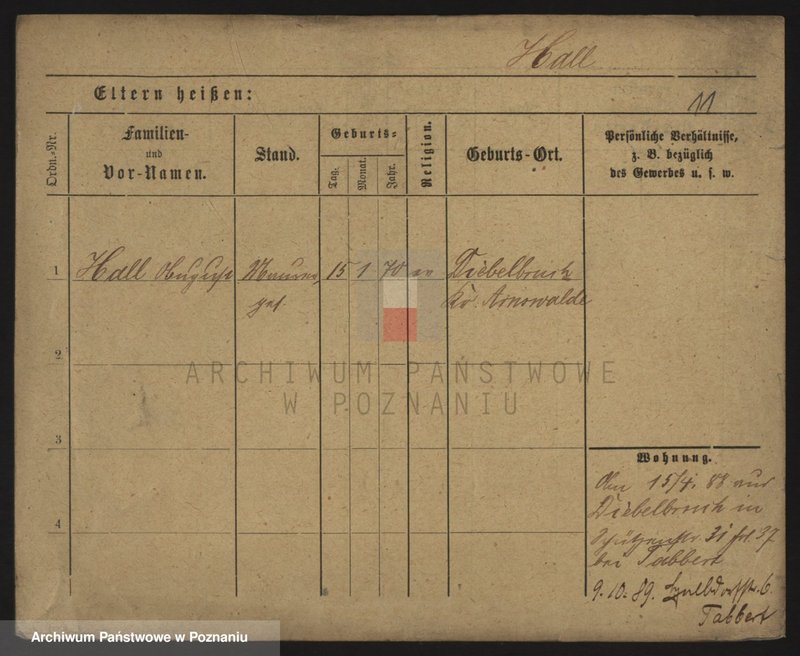 Hall
Eltern heißen:
11
Ordn.-Nr.
Familien-
und
Vor-Namen.
Stand.
Geburts-
Tag.
Monat.
Jahr.
Religion.
Geburts-Ort.
Persönliche Verhältnisse,
z. B. bezüglich
des Gewerbes u. s. w.
1 Hall August Maurer 15 1 70 ev Diebelbruch
ges. Kr. Arnswalde
2
ARCHIWUM PAŃSTWOWE
W POZNANIU
3
Wohnung.
15/4. 88 aus
Diebelbruch in
Schützenstr. 31
4
bei Tabbert
9.10.89. 6.
Tabbert
Archiwum Państwowe w Poznaniu